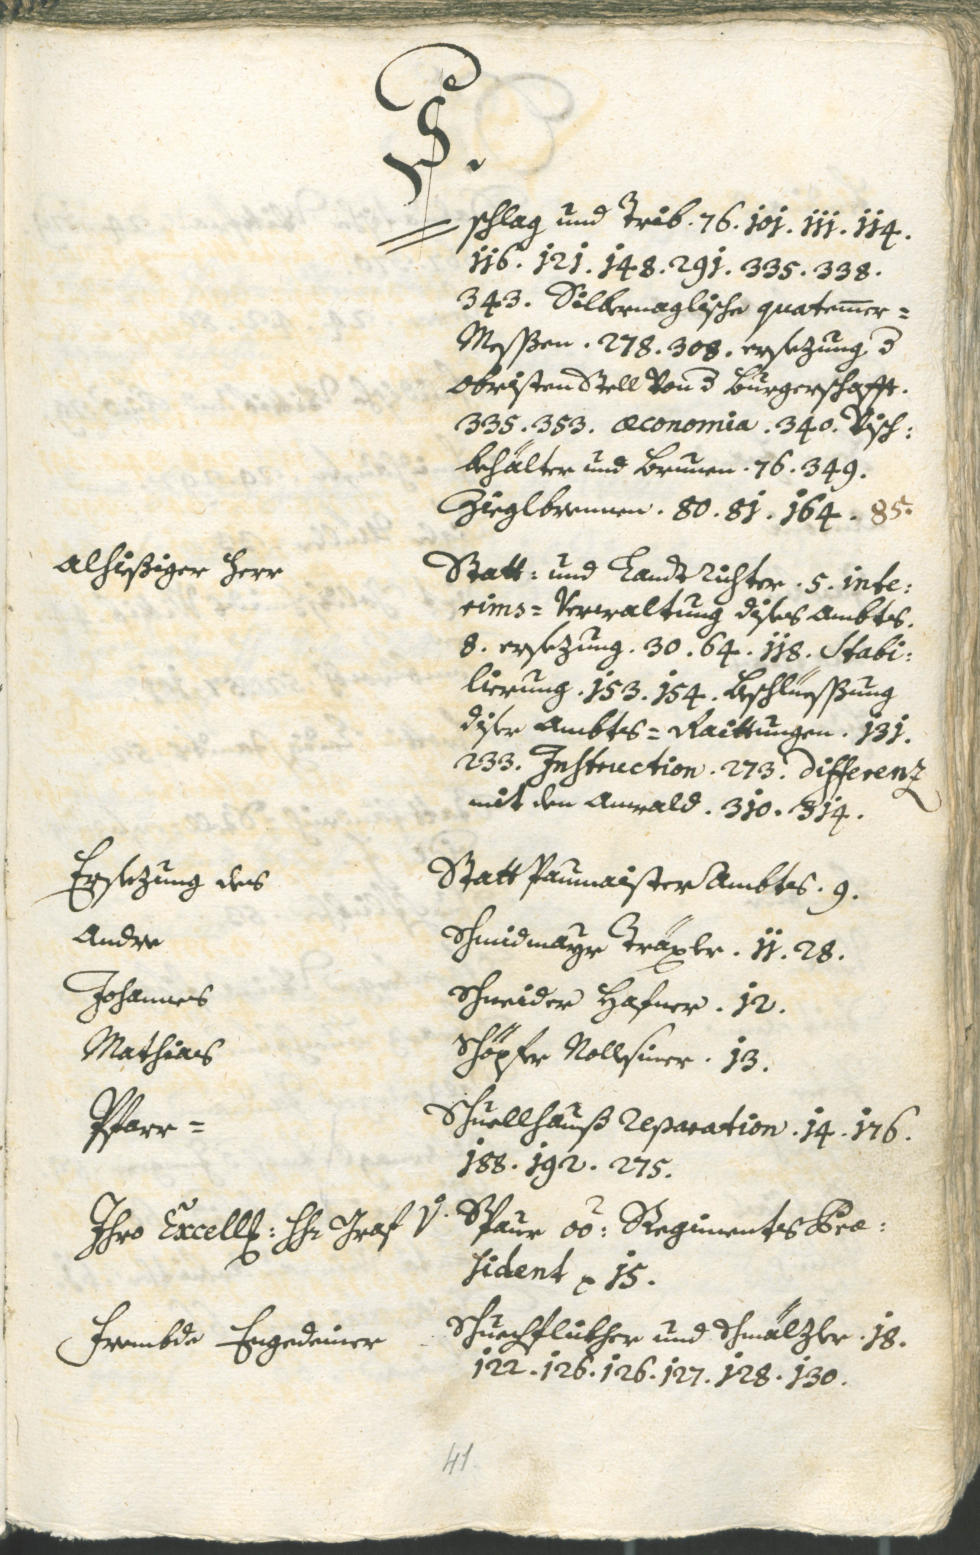 S.
schlag und Trib. 76. 101. 111. 114.
116. 121. 148. 291. 335. 338.
343. Silbernaglische quatemer=
Messßen. 278. 308. ersetzung d
obristen Stell Von d burgerschafft.
335. 353. œconomia. 340. Visch:
behälter und brunen. 76. 349.
Zieglbrennen. 80. 81. 164. 85.
alhießiger Herr Statt= und Landt Richter. 5. inte:
rims= Verwaltung dises ambtes.
8. ersetzung. 30. 64. 118. Stabi:
lierung. 153. 154. beschliesßung
diser ambtes= Raittungen. 131.
233. Instruction. 273. differenz
mit den anwald. 310. 314.
Ersetzung des Statt Paumaister Ambtes. 9.
Andre Schmidmayr Träxler. 11. 28.
Johannes Schneider Hafner. 12.
Mathias Schöpfer Nollsiner. 13.
Pfarr= Schuellhauß Reparation. 14. 176.
188. 192. 275.
Ihro Excell: hh Graf v. Spaur oö: Regimentes Præ:
sident p 15.
frembde Engedeiner Schuechflikher und Schmälzler. 18.
122. 126. 126. 127. 128. 130.
41